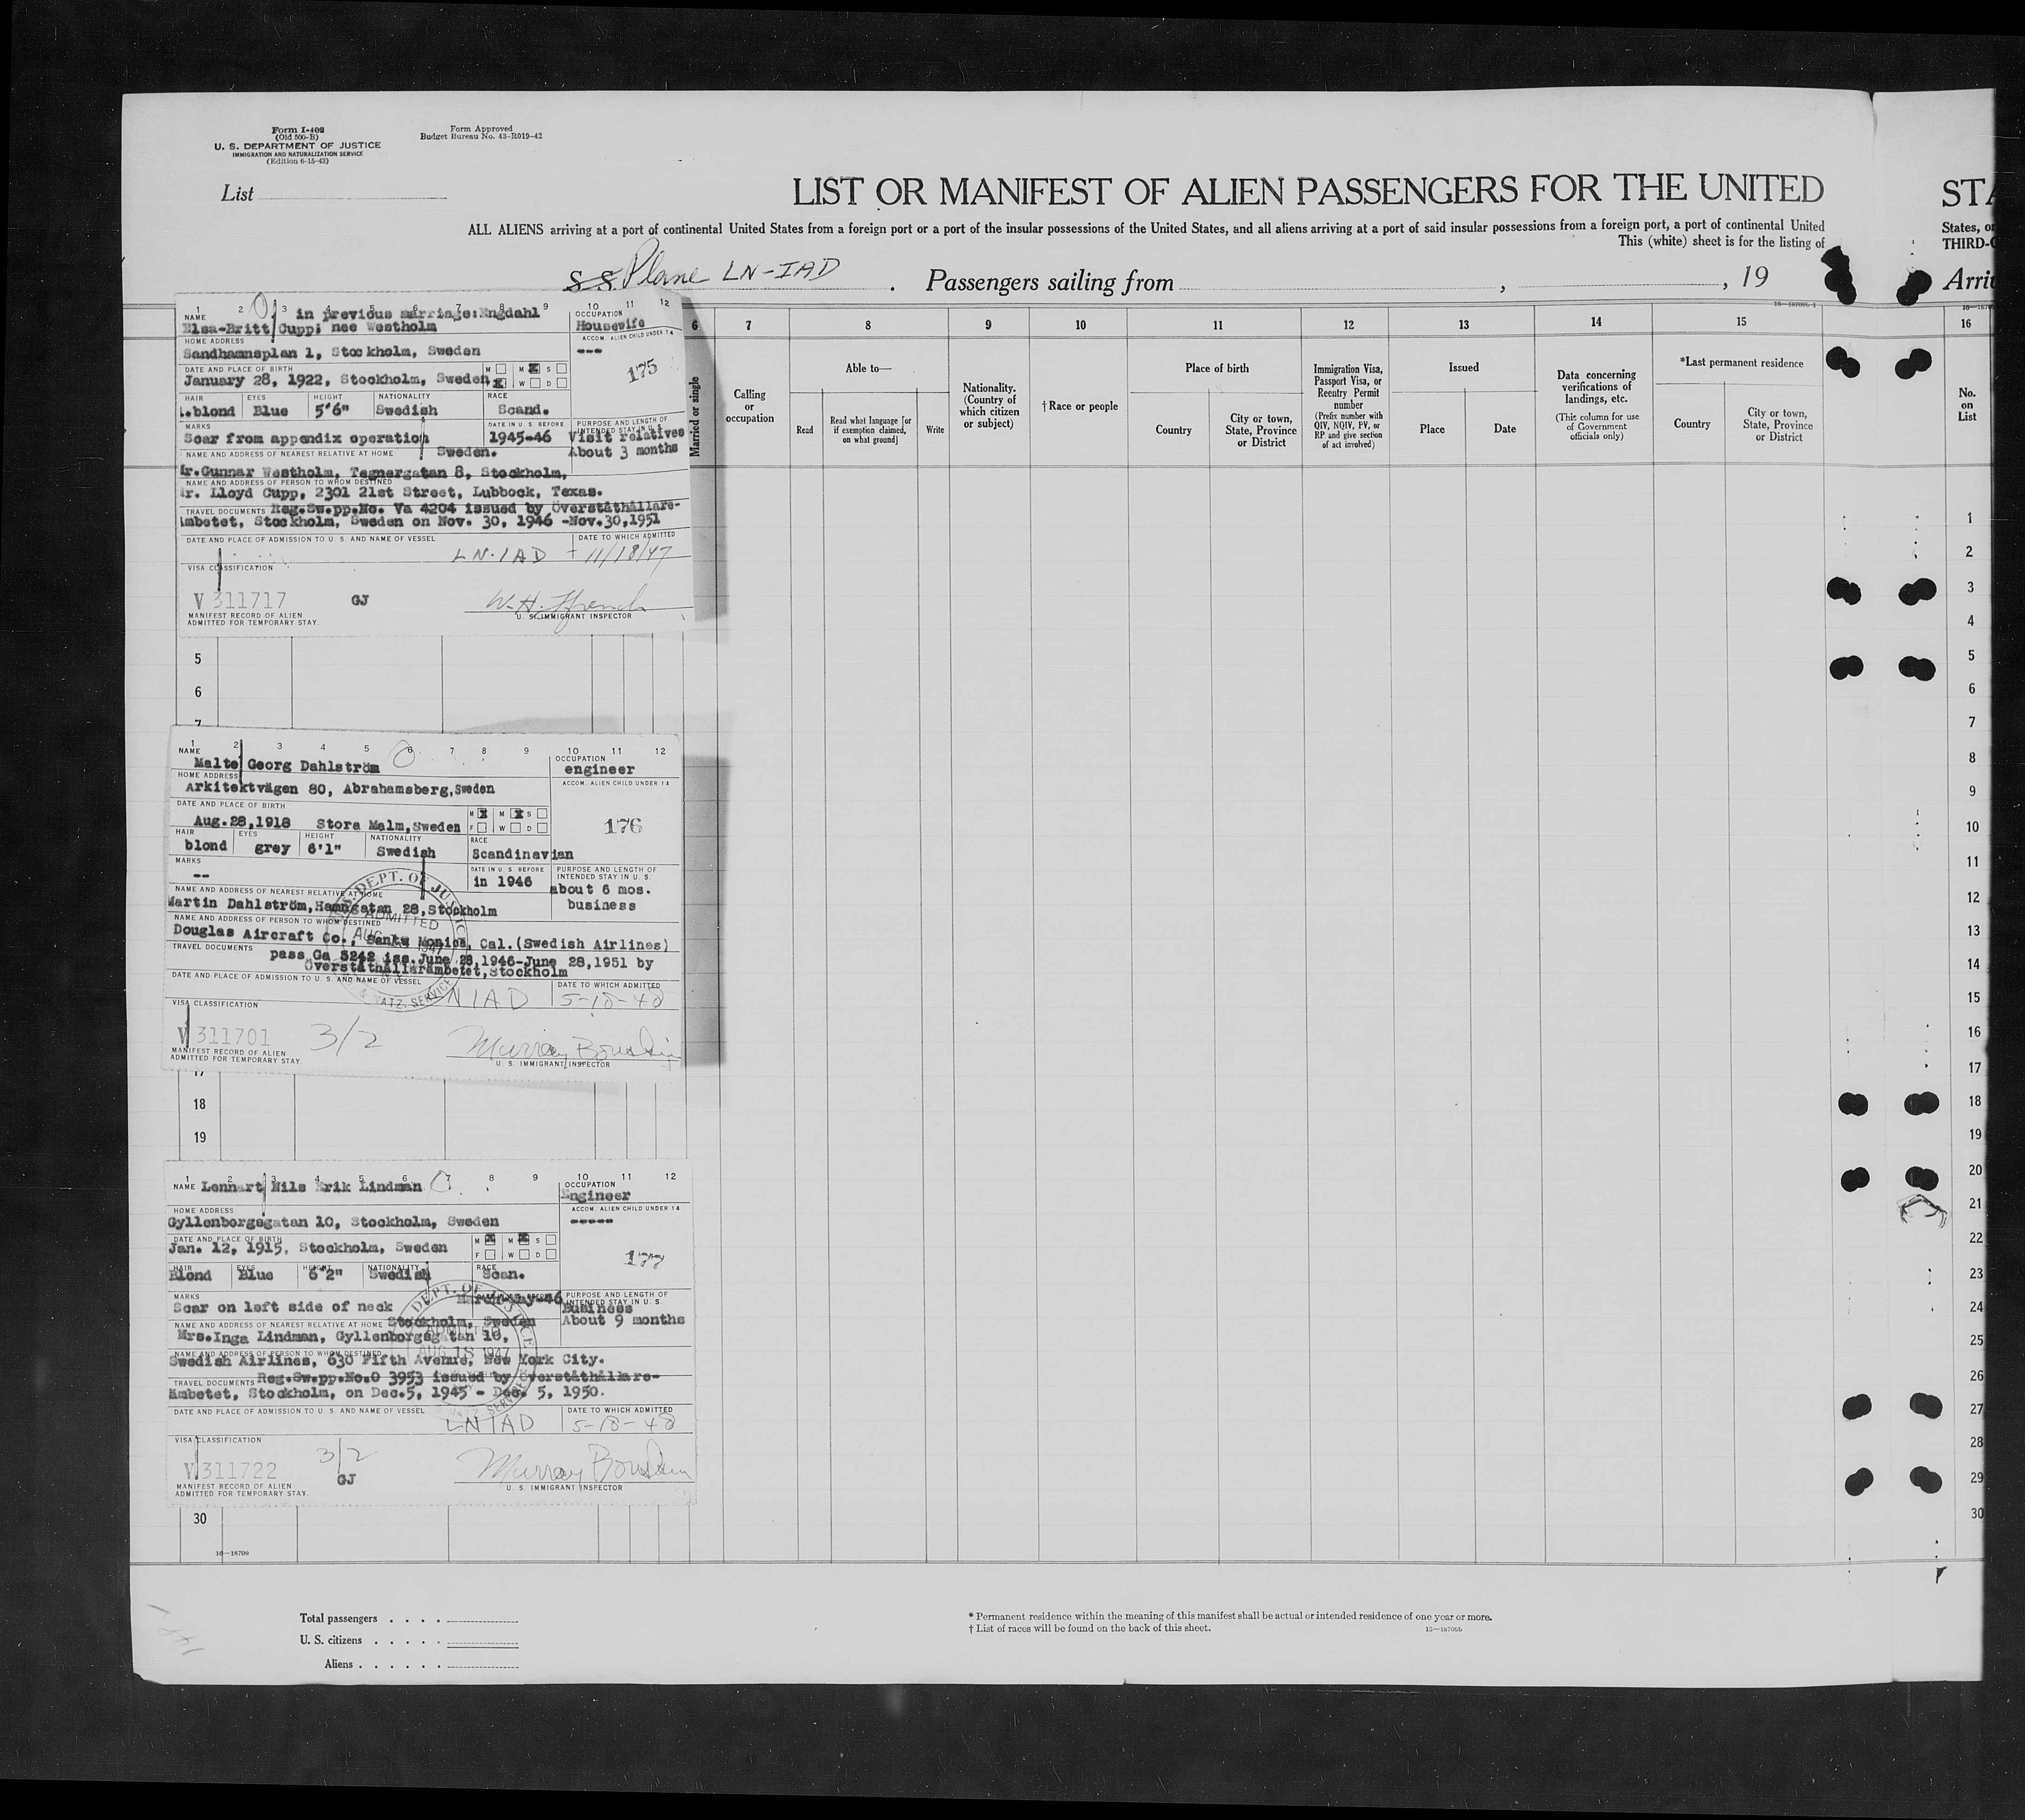 Form I-402
(Old 500-B)
U. S. DEPARTMENT OF JUSTICE
IMMIGRATION AND NATURALIZATION SERVICE
(Edition 6-15-43)
Form Approved
Budget Bureau No. 43-R019-42
List
LIST OR MANIFEST OF ALIEN PASSENGERS FOR THE UNITED
STA
ALL ALIENS arriving at a port of continental United States from a foreign port or a port of the insular possessions of the United States, and all aliens arriving at a port of said insular possessions from a foreign port, a port of continental United
This (white) sheet is for the listing of
States, or
THIRD-C
S. S. Plane LN-IAD . Passengers sailing from , , 19
Arri
1 2 3 4 5 6 7 8 9 10 11 12
NAME in previous marriage:Engdahl
Elsa-Britt Cupp; nee Westholm
OCCUPATION
Housewife
HOME ADDRESS
Sandhamnsplan 1, Stockholm, Sweden
ACCOM. ALIEN CHILD UNDER 14
---
175
DATE AND PLACE OF BIRTH
January 28, 1922, Stockholm, Sweden
M M S
W D
HAIR EYES HEIGHT NATIONALITY RACE
l.blond Blue 5'6" Swedish Scand.
MARKS
Scar from appendix operation
DATE IN U. S. BEFORE
1945-46
PURPOSE AND LENGTH OF
INTENDED STAY IN U. S.
Visit relatives
About 3 months
NAME AND ADDRESS OF NEAREST RELATIVE AT HOME Sweden.
Mr.Gunnar Westholm, Tegnergatan 8, Stockholm,
NAME AND ADDRESS OF PERSON TO WHOM DESTINED
Mr. Lloyd Cupp, 2301 21st Street, Lubbock, Texas.
TRAVEL DOCUMENTS Reg.Sw.pp.No. Va 4204 issued by Överståthållare-
ämbetet, Stockholm, Sweden on Nov. 30, 1946 -Nov.30,1951
DATE AND PLACE OF ADMISSION TO U. S. AND NAME OF VESSEL
LN-IAD
DATE TO WHICH ADMITTED
11/18/47
VISA CLASSIFICATION
V 311717 GJ
MANIFEST RECORD OF ALIEN
ADMITTED FOR TEMPORARY STAY.
W.H. Ffrench
U. S. IMMIGRANT INSPECTOR
6 7 8 9 10 11 12 13 14 15 16
Married or single
Calling
or
occupation
Able to—
Read
Read what language [or
if exemption claimed,
on what ground]
Write
Nationality.
(Country of
which citizen
or subject)
†Race or people
Place of birth
Country
City or town,
State, Province
or District
Immigration Visa,
Passport Visa, or
Reentry Permit
number
(Prefix number with
QIV, NQIV, PV, or
RP and give section
of act involved)
Issued
Place
Date
Data concerning
verifications of
landings, etc.
(This column for use
of Government
officials only)
*Last permanent residence
Country
City or town,
State, Province
or District
No.
on
List
5
6
7
1 2 3 4 5 6 7 8 9 10 11 12
NAME
Malte Georg Dahlström
OCCUPATION
engineer
HOME ADDRESS
Arkitektvägen 80, Abrahamsberg,Sweden
ACCOM. ALIEN CHILD UNDER 14
176
DATE AND PLACE OF BIRTH
Aug.28,1918 Stora Malm,Sweden
M M S
F W D
HAIR EYES HEIGHT NATIONALITY RACE
blond grey 6'1" Swedish Scandinavian
MARKS
--
DATE IN U. S. BEFORE
in 1946
PURPOSE AND LENGTH OF
INTENDED STAY IN U. S.
about 6 mos.
business
NAME AND ADDRESS OF NEAREST RELATIVE AT HOME
Martin Dahlström,Hamngatan 28,Stockholm
NAME AND ADDRESS OF PERSON TO WHOM DESTINED
Douglas Aircraft Co., Santa Monica, Cal.(Swedish Airlines)
TRAVEL DOCUMENTS
pass Ga 5242 iss.June 28,1946-June 28,1951 by
Överståthållarämbetet,Stockholm
DATE AND PLACE OF ADMISSION TO U. S. AND NAME OF VESSEL
LNIAD
DATE TO WHICH ADMITTED
5-18-48
VISA CLASSIFICATION
V 311701 3/2
MANIFEST RECORD OF ALIEN
ADMITTED FOR TEMPORARY STAY.
U. S. IMMIGRANT INSPECTOR
17
18
19
1 2 3 4 5 6 7 8 9 10 11 12
NAME Lennart Nils Erik Lindman
OCCUPATION
Engineer
HOME ADDRESS
Gyllenborgsgatan 10, Stockholm, Sweden
ACCOM. ALIEN CHILD UNDER 14
-----
177
DATE AND PLACE OF BIRTH
Jan. 12, 1915, Stockholm, Sweden
M M S
F W D
HAIR EYES HEIGHT NATIONALITY RACE
Blond Blue 6'2" Swedish Scan.
MARKS
Scar on left side of neck
March-May-46
PURPOSE AND LENGTH OF
INTENDED STAY IN U. S.
Business
About 9 months
NAME AND ADDRESS OF NEAREST RELATIVE AT HOME Stockholm, Sweden
Mrs.Inga Lindman, Gyllenborgsgatan 10,
NAME AND ADDRESS OF PERSON TO WHOM DESTINED
Swedish Airlines, 630 Fifth Avenue, New York City.
TRAVEL DOCUMENTS Reg.Sw.pp.No.O 3953 issued by Överståthållare-
ämbetet, Stockholm, on Dec.5, 1945 - Dec. 5, 1950.
DATE AND PLACE OF ADMISSION TO U. S. AND NAME OF VESSEL
LNIAD
DATE TO WHICH ADMITTED
5-18-48
VISA CLASSIFICATION
V 311722 3/2 GJ
MANIFEST RECORD OF ALIEN
ADMITTED FOR TEMPORARY STAY.
U. S. IMMIGRANT INSPECTOR
30
16—18709
1
2
3
4
5
6
7
8
9
10
11
12
13
14
15
16
17
18
19
20
21
22
23
24
25
26
27
28
29
30
Total passengers . . . .
U. S. citizens . . . . .
Aliens . . . . . .
* Permanent residence within the meaning of this manifest shall be actual or intended residence of one year or more.
† List of races will be found on the back of this sheet.